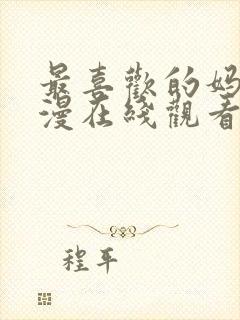 最喜歡的媽
漫在綫觀看
程平